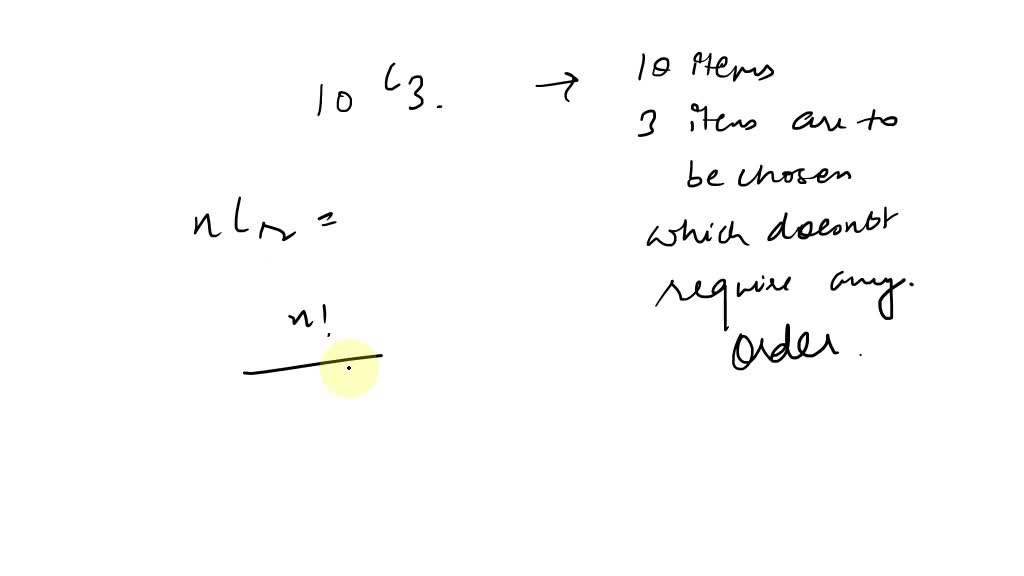 10 C 3. → 10 items
3 items are to
be chosen
which doesnot
require any.
order.
nCr =
n!